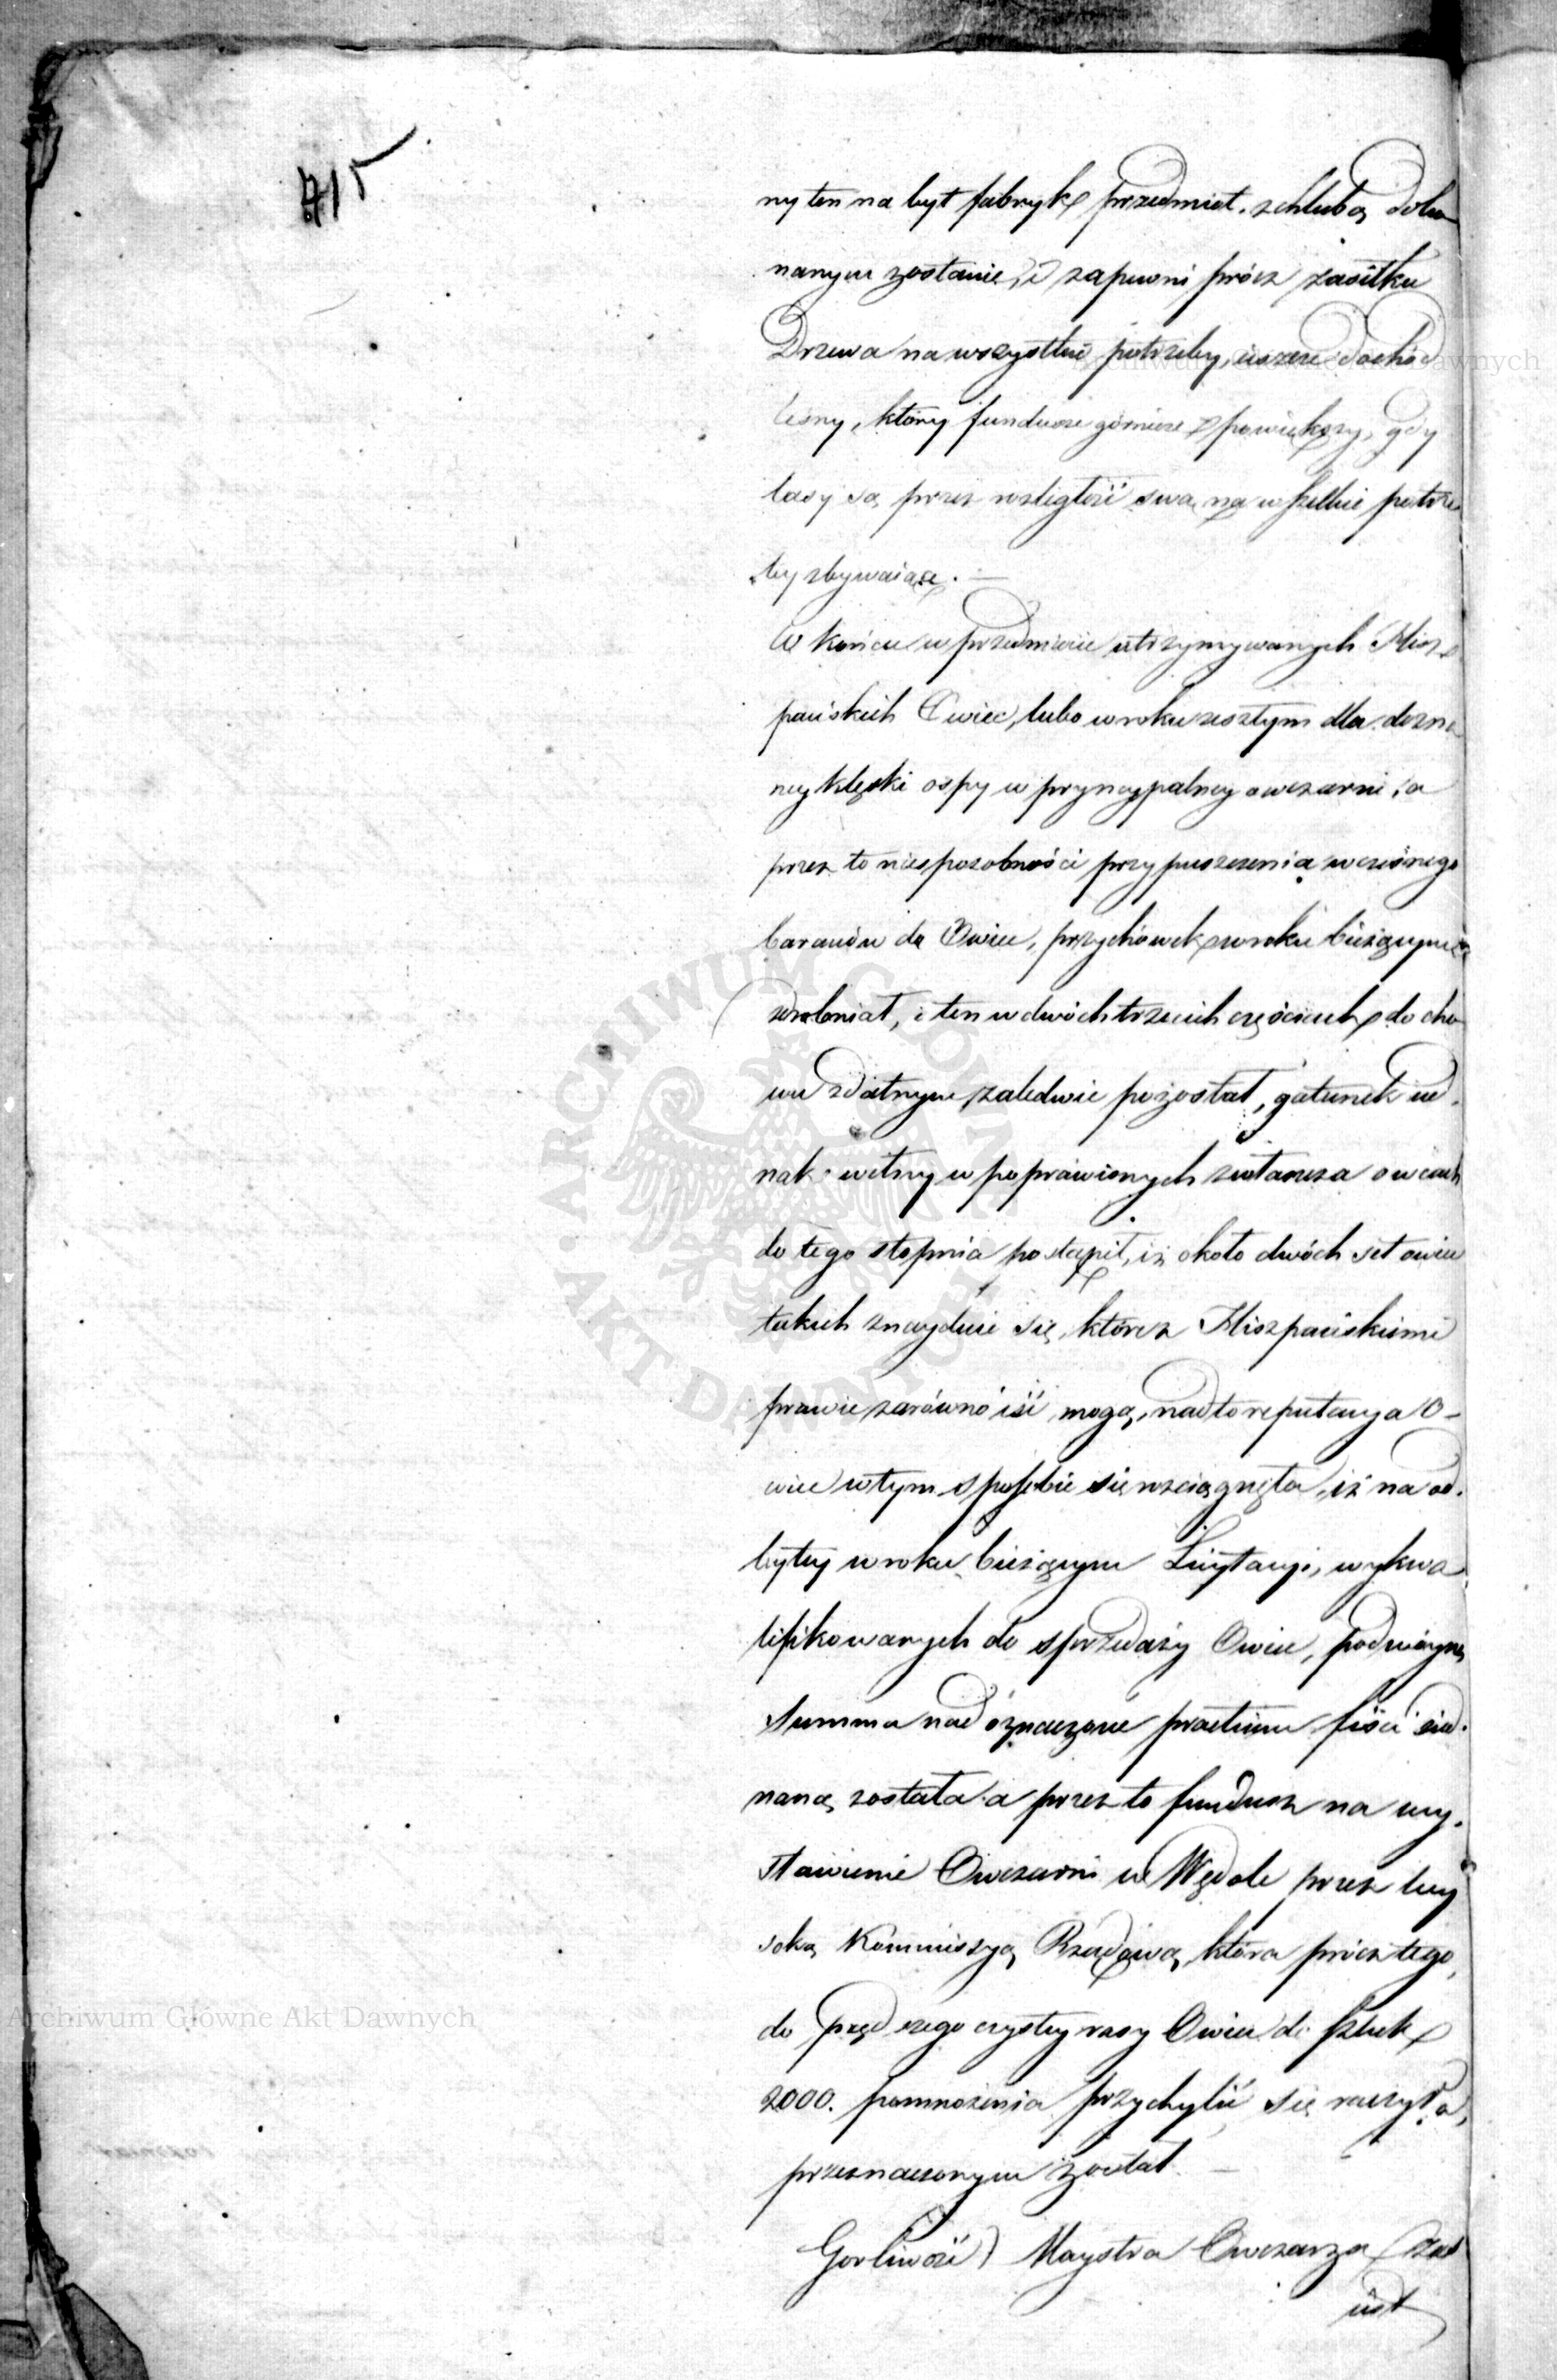 415
ny ten na byt fabryk przedmiot, z chlubą doko
nanym zostanie, i zapewni prócz zasiłku
Drzewa na wszystkie potrzeby, ieszcze dochód
leśny, który fundusze górnicze powiększy, gdy
lasy są przez rozległość swą na wszelkie potrze
by zbywaiące. —
W końcu w przedmiocie utrzymywanych Hisz-
pańskich Owiec, lubo w roku zeszłym dla dozna
ney klęski ospy w pryncypalney owczarni, a
przez to niesposobności przypuszczenia wczesnego
baranów do Owiec, przychówek w roku bieżącym
zdrobniał, i ten w dwóch trzecich częściach do cho
wu zdatnym zaledwie pozostał, gatunek ied-
nak wełny w poprawionych zwłaszcza owcach
do tego stopnia postąpił, iż około dwóch set owiec
takich znayduie się, które z Hiszpańskiemi
prawie zarówno iść mogą, nadto reputacya O-
wiec w tym sposobie się rozciągnęła, iż na od-
bytey w roku bieżącym Licytacyi, wykwa
lifikowanych do sprzedaży Owiec, podwóyna
Summa nad oznaczone praetium fisci ied-
naną została a przez to fundusz na wy-
stawienie Owczarni w Wędole przez Wy
soką Kommissyą Rządową, która prócz tego,
do prędszego czystey rasy Owiec do sztuk
2000. pomnożenia przychylić się raczyła,
przeznaczonym został. —
Gorliwość Maystra Owczarza
iest
Archiwum Główne Akt Dawnych
Archiwum Główne Akt Dawnych
ARCHIWUM GŁÓWNE
AKT DAWNYCH